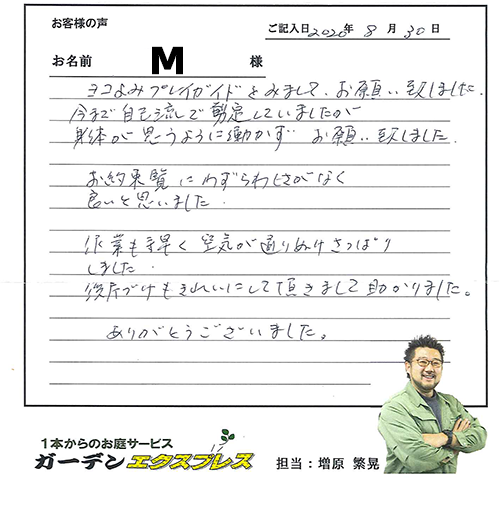 お客様の声
ご記入日 2020年 8月 30日
お名前 M 様
ヨコよみプレイガイドをみまして、お願い致しました。
今まで自己流で剪定していましたが
身体が思うように働かず お願い致しました。
お約束 にわずらわしさがなく
良いと思いました.
作業も手早く 空気が通りぬけさっぱり
しました.
後片づけもきれいにして頂きまして助かりました。
ありがとうございました。
1本からのお庭サービス
ガーデンエクスプレス
担当：増原 繁晃